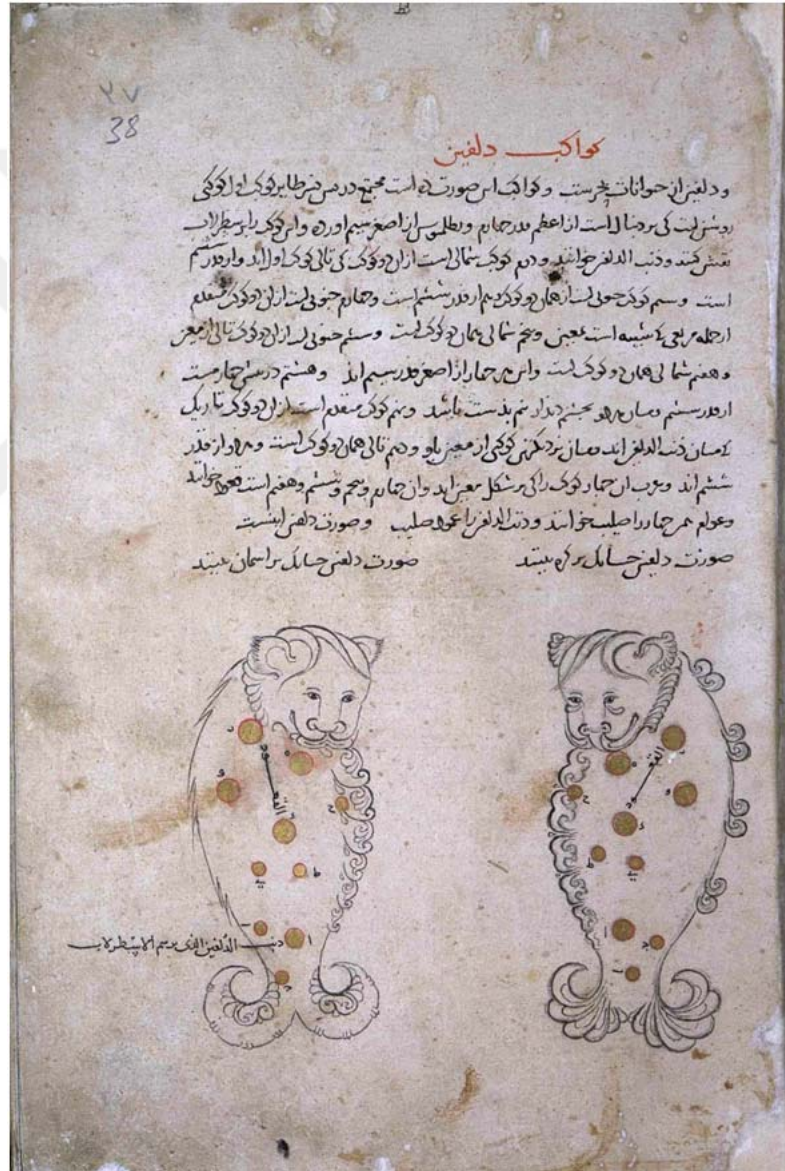 ۲۷
38
کواکب دلفین
و دلفین از حیوانات بحرست و کواکب این صورت ده است مجتمع در پس نسر طایر کوکب اول کوکبی
روشن است کی بر دنبال است از اعظم قدر چهارم و بطلمیوس از اصغر سیم آورده و این کوکب را بر سطرلاب
نقش کنند و ذنب الدلفین خوانند و دوم کوکب شمالی است از ان دو کوکب کی تالی کوکب اول اند و از قدر ششم
است و سیم کوکب جنوبی است از همان دو کوکب هم از قدر ششم است و چهارم جنوبی است از ان دو کوکب متقدم
از جمله مربعی کی شبیه است بمعین و پنجم شمالی همان دو کوکب است و ششم جنوبی است از ان دو کوکب تالی از معین
و هفتم شمالی همان دو کوکب است و این هر چهار از اصغر قدر سیم اند و هشتم در پیش چهارمست
از قدر ششم و میان هر دو بچشم دیدار نیم بدست باشد و نهم کوکب متقدم است از ان دو کوکب تاریک
کی میان ذنب الدلفین اند و میان نزدیکترین کوکبی از معین باو و دهم تالی همان دو کوکب است و هر دو از قدر
ششم اند و عرب ان چهار کوکب را کی بر شکل معین اند و ان چهارم و پنجم و ششم و هفتم است قعود خوانند
و عوام هر چهار را صلیب خوانند و ذنب الدلفین را عمود صلیب و صورت دلفین اینست
صورت دلفین چنانک بر کره بینند صورت دلفین چنانک بر اسمان بینند
القعود
القعود
ذنب الدلفین الذی یرسم الاسطرلاب